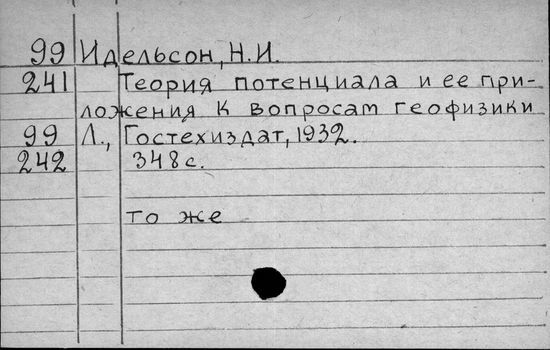 99 Идельсон, Н.И.
241 Теория потенциала и ее при-
ложения к вопросам геофизики
99 Л., Гостехиздат, 1932.
242 348с.
то же